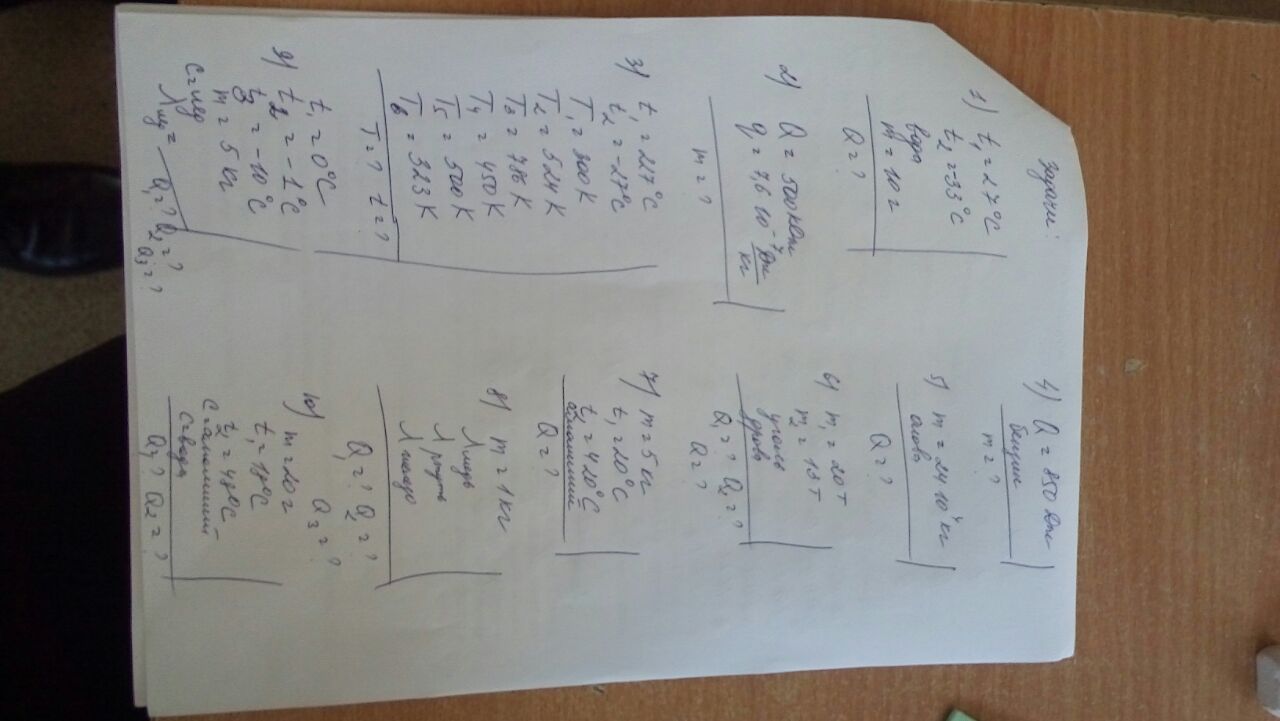 Задачи:
1) t₁ = 27°C
t₂ = -33°C
вода
m = 10 г
Q = ?
2) Q = 500 кДж
q = 7,6 10⁻⁷ Дж/кг
m = ?
3) t₁ = 227°C
t₂ = -27°C
T₁ = 300 K
T₂ = 524 K
T₃ = 786 K
T₄ = 450 K
T₅ = 500 K
T₆ = 323 K
T = ? t = ?
9) t₁ = 0°C
t₂ = -1°C
t₃ = -10°C
m = 5 кг
C =
λ =
Q₁ = ? Q₂ = ?
Q₃ = ?
4) Q = 850 Дж
бензин
m = ?
5) m = 24 10⁴ кг
Q = ?
6) m₁ = 20 т
уголь
m₂ = 13 т
дрова
Q₁ = ? Q₂ = ?
Q = ?
7) m = 5 кг
t₁ = 20°C
t₂ = 420°C
алюминий
Q = ?
8) m = 1 кг
λ
λ ртуть
λ
Q₁ = ? Q₂ = ?
Q₃ = ?
10) m = 20 г
t₁ = 17°C
t₂ = 47°C
C = алюминий
C = вода
Q₁ = ? Q₂ = ?